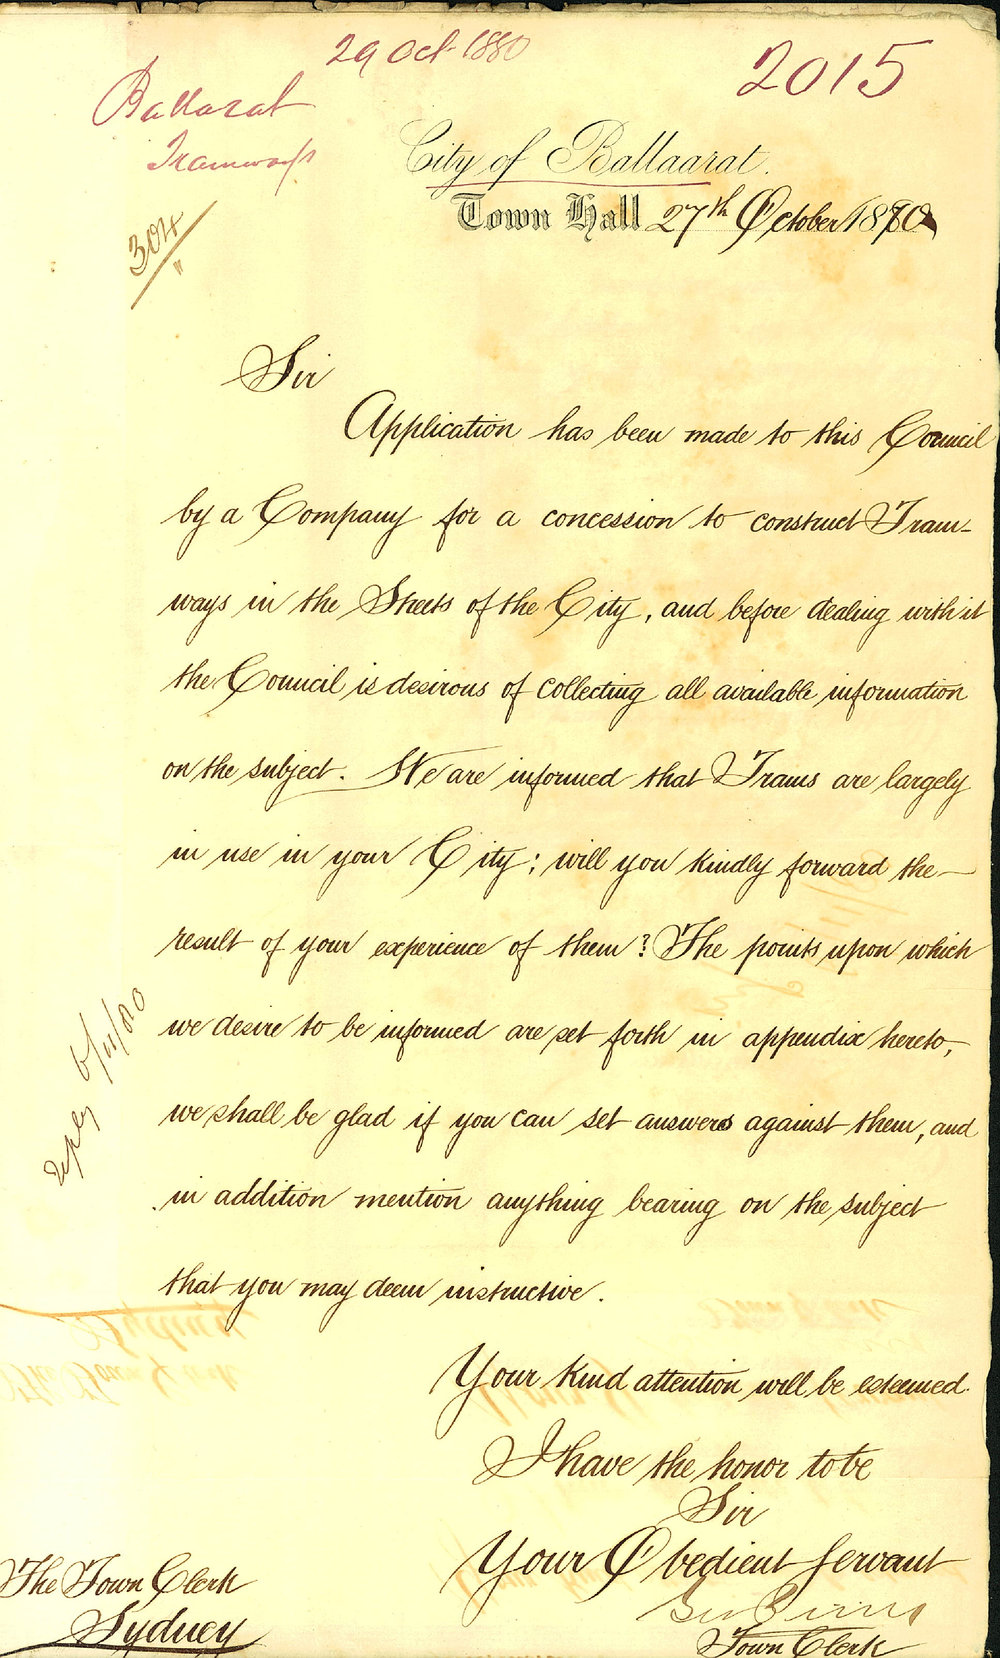 29 Oct 1880
2015
Ballarat
Tramways
City of Ballaarat.
Town Hall 27th October 1880
304
"
Sir
Application has been made to this Council
by a Company for a concession to construct Tram-
ways in the Streets of the City, and before dealing with it
the Council is desirous of collecting all available information
on the subject. We are informed that Trams are largely
in use in your City; will you kindly forward the
result of your experience of them? The points upon which
we desire to be informed are set forth in appendix hereto,
we shall be glad if you can set answers against them, and
in addition mention anything bearing on the subject
that you may deem instructive.
Your kind attention will be esteemed.
I have the honor to be
Sir
Your Obedient Servant
Town Clerk
The Town Clerk
Sydney